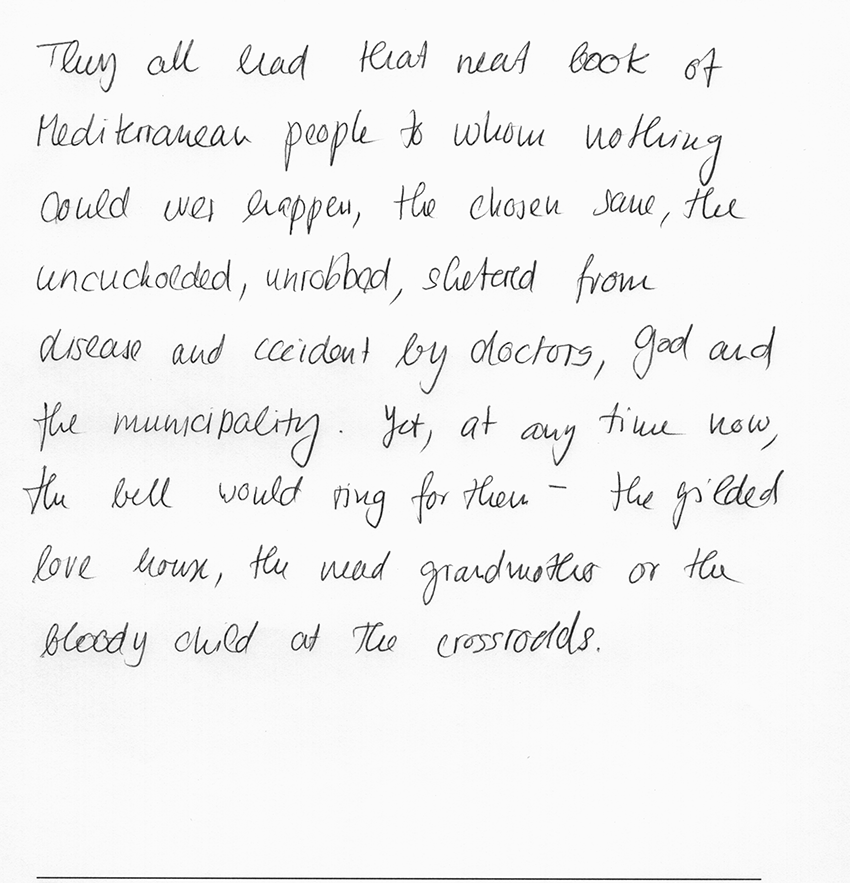 They all had that neat book of
Mediterranean people to whom nothing
could ever happen, the chosen sane, the
uncuckolded, unrobbed, sheltered from
disease and accident by doctors, God and
the municipality. Yet, at any time now,
the bell would ring for them – the gilded
love house, the mad grandmother or the
bloody child at the crossroads.